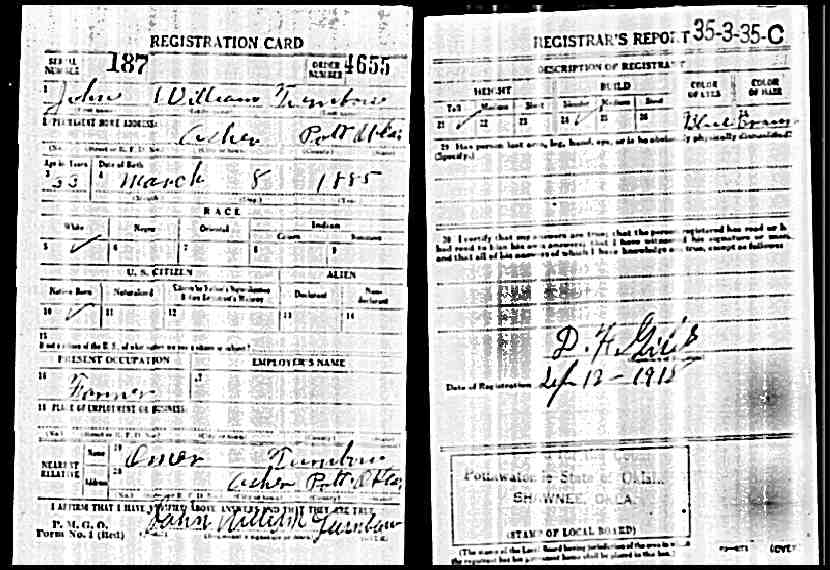 REGISTRATION CARD
SERIAL NUMBER 187 ORDER NUMBER 4655
1 John William Turnbow
2 PERMANENT HOME ADDRESS:
Asher Pott Okla
(No.) (Street or R. F. D. No.) (City or town) (County) (State)
Age in Years Date of Birth
3 33 4 March 8 1885
(Month) (Day) (Year)
RACE
White Negro Oriental Indian
Citizen Noncitizen
5 ✓ 6 7 8 9
U. S. CITIZEN ALIEN
Native Born Naturalized Citizen by Father's Naturalization Before Registrant's Majority Declarant Non-declarant
10 ✓ 11 12 13 14
15
If not a citizen of the U. S., of what nation are you a citizen or subject?
PRESENT OCCUPATION EMPLOYER'S NAME
16 Farmer 17
18 PLACE OF EMPLOYMENT OR BUSINESS:
(No.) (Street or R. F. D. No.) (City or town) (County) (State)
NEAREST RELATIVE Name 19 Omer Turnbow
Address 20 Asher Pott Okla
(No.) (Street or R. F. D. No.) (City or town) (County) (State)
I AFFIRM THAT I HAVE VERIFIED ABOVE ANSWERS AND THAT THEY ARE TRUE
P. M. G. O.
Form No. 1 (Red) John William Turnbow
REGISTRAR'S REPORT 35-3-35-C
DESCRIPTION OF REGISTRANT
HEIGHT BUILD COLOR OF EYES COLOR OF HAIR
Tall Medium Short Slender Medium Stout
21 ✓ 22 23 24 ✓ 25 26 28
29 Has person lost arm, leg, hand, eye, or is he obviously physically disqualified?
(Specify.)
30 I certify that my answers are true; that the person registered has read or has
had read to him his own answers; that I have witnessed his signature or mark,
and that all of his answers of which I have knowledge are true, except as follows:
D. H.
Date of Registration Sep 12 - 1918
State of Okla.
SHAWNEE, OKLA.
(STAMP OF LOCAL BOARD)
(The stamp of the Local Board having jurisdiction of the area in which
the registrant has his permanent home shall be placed in this box.)
(OVER)